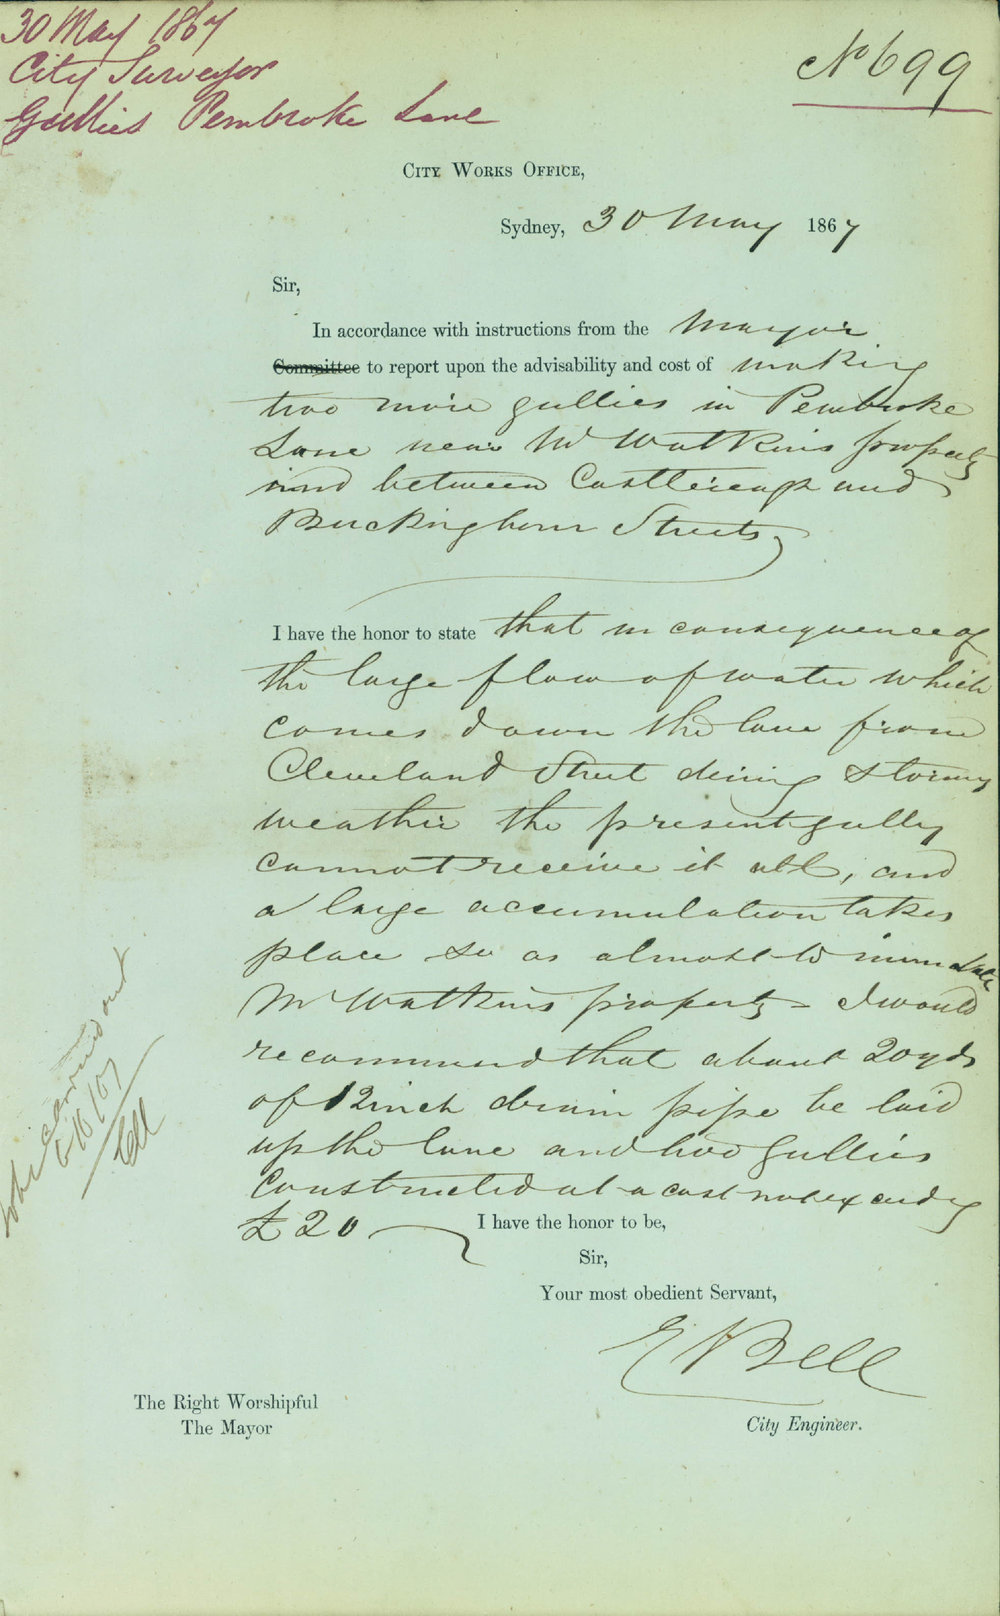 30 May 1867
City Surveyor
Gullies Pembroke Lane
No 699
City Works Office,
Sydney, 30 May 1867
Sir,
In accordance with instructions from the Mayor
Committee to report upon the advisability and cost of making
two more gullies in Pembroke
Lane near Mr Watkins property
and between Castlereagh and
Buckingham Streets,
I have the honor to state that in consequence of
the large flow of water which
comes down the lane from
Cleveland Street during stormy
weather the present gully
cannot receive it all, and
a large accumulation takes
place so as almost to inundate
Mr Watkins property - I would
recommend that about 20 yds
of 12 inch drain pipe be laid
up the lane and two gullies
constructed at a cost not exceeding
£20
I have the honor to be,
Sir,
Your most obedient Servant,
E Bell
City Engineer.
The Right Worshipful
The Mayor
carried out
6/6/67
EB